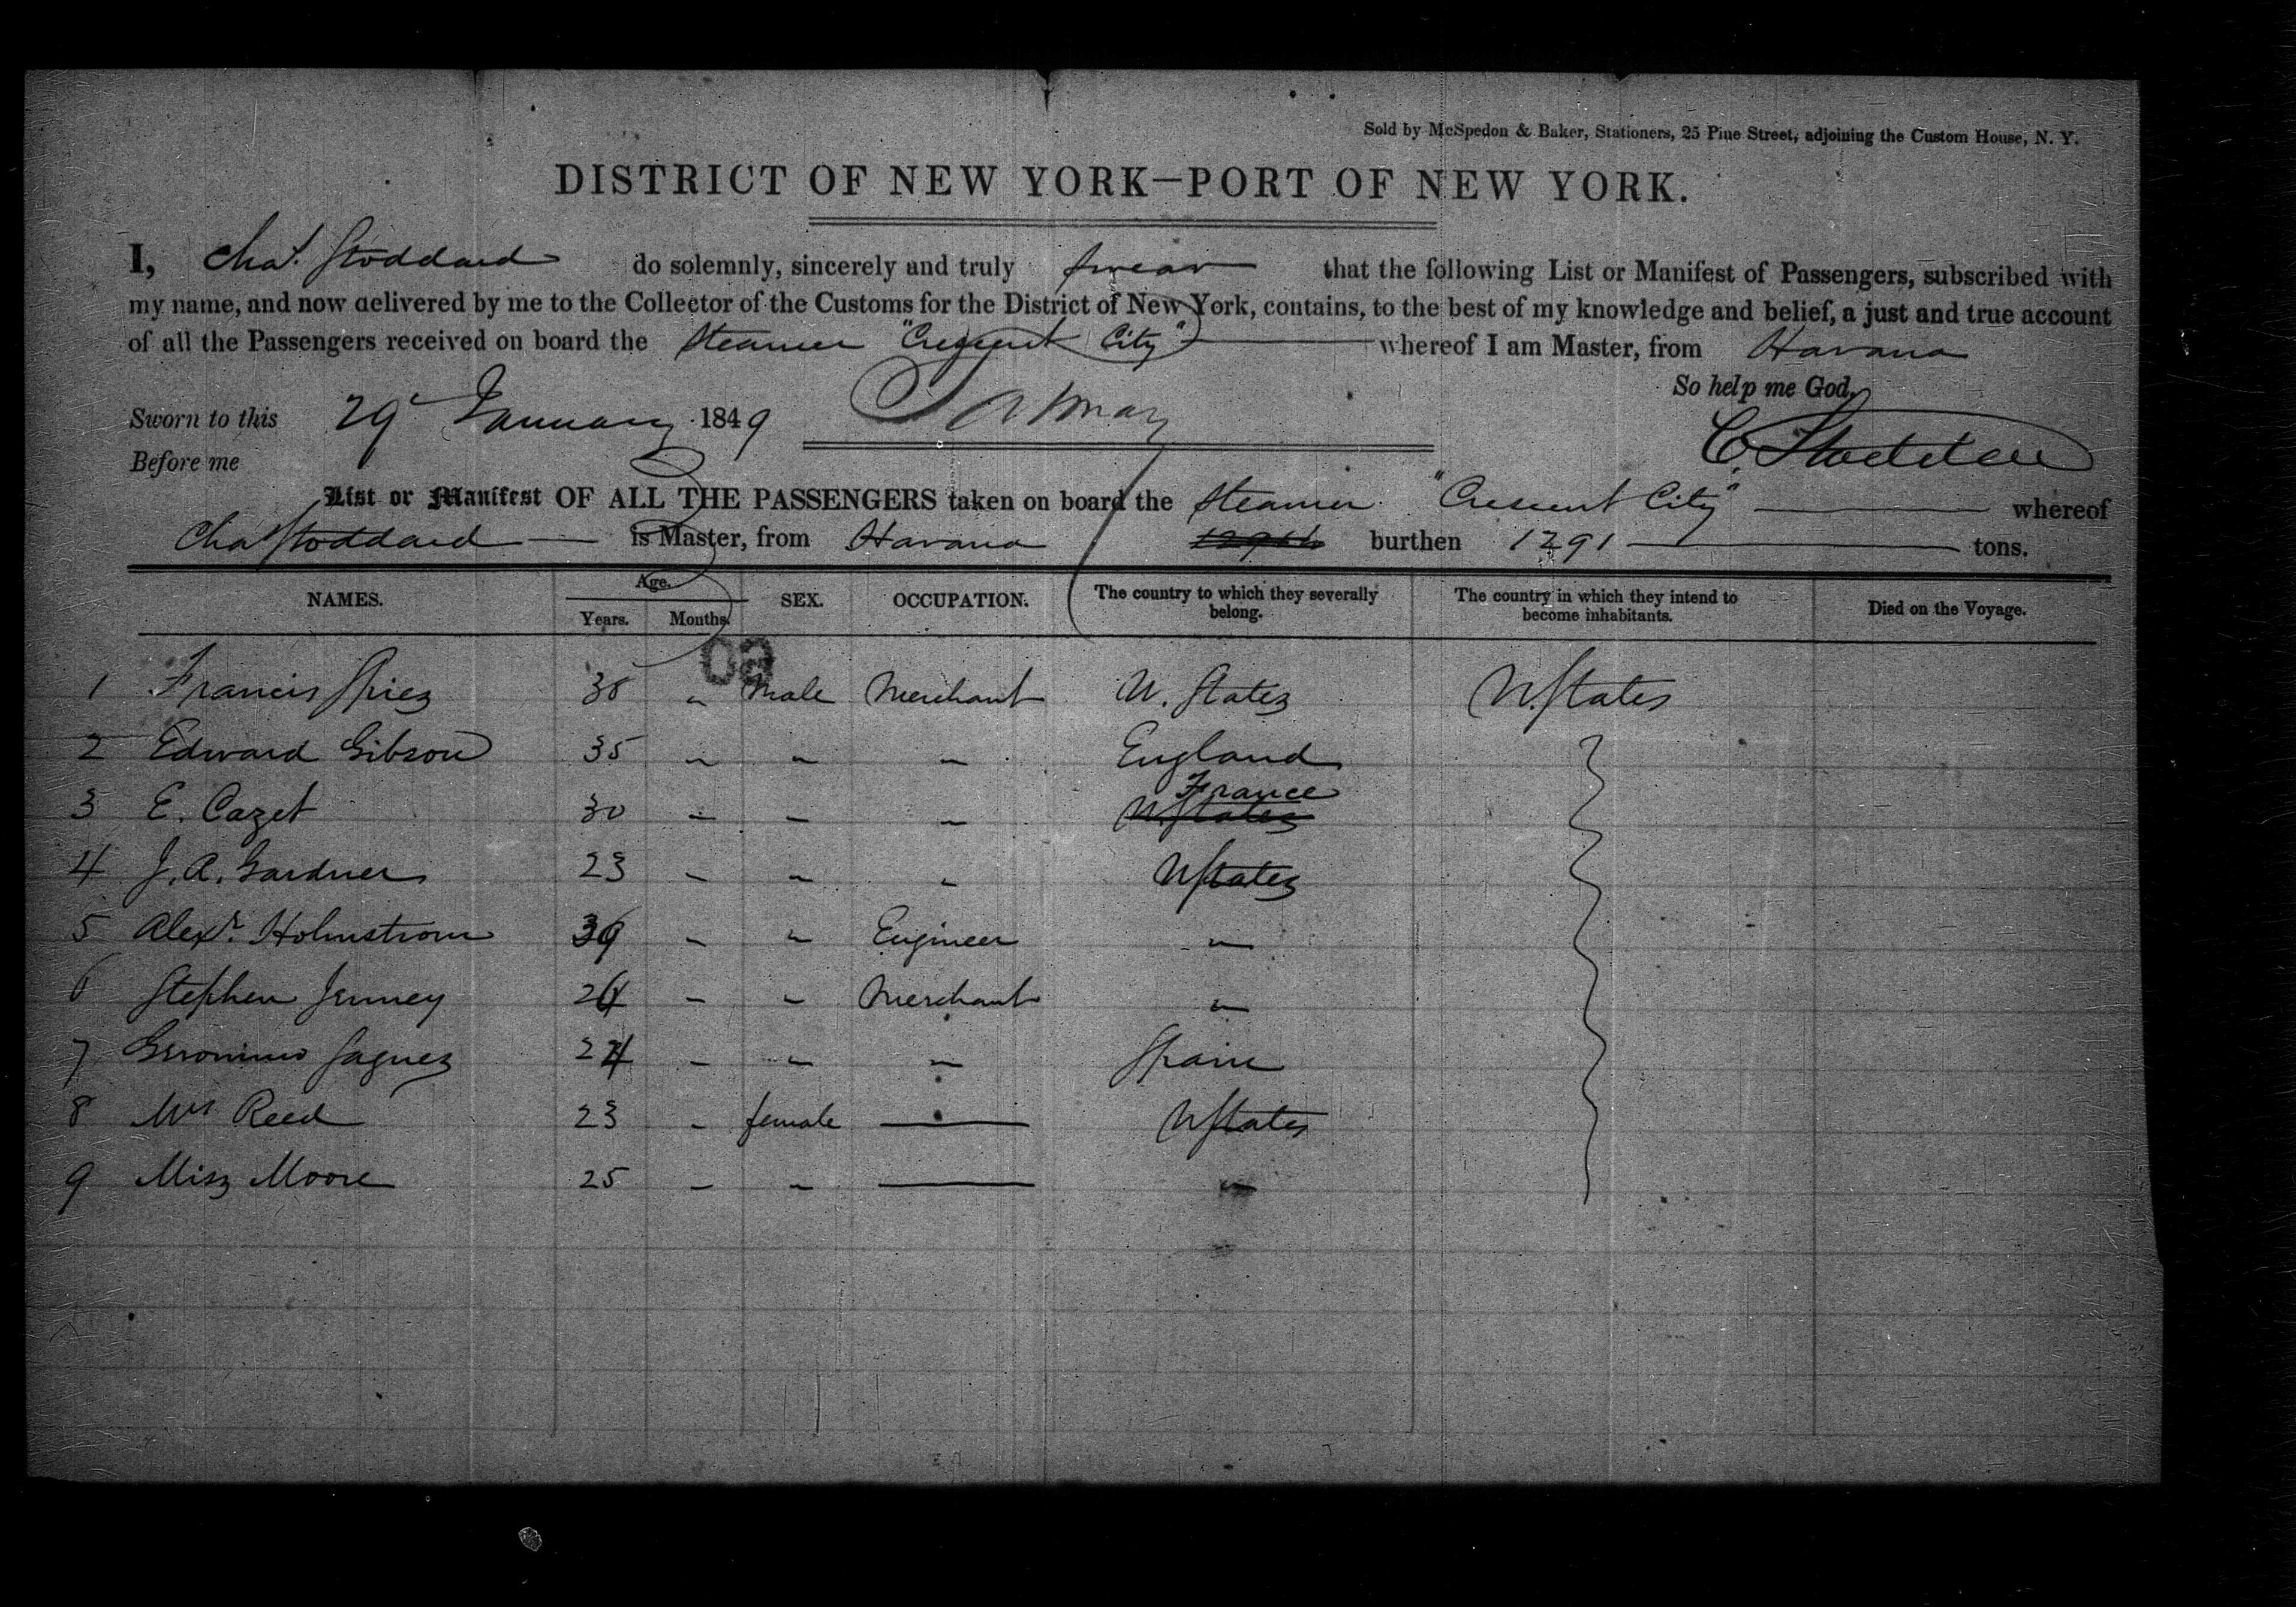 Sold by McSpedon & Baker, Stationers, 25 Pine Street, adjoining the Custom House, N. Y.
DISTRICT OF NEW YORK—PORT OF NEW YORK.
I, Chas. Stoddard do solemnly, sincerely and truly swear that the following List or Manifest of Passengers, subscribed with
my name, and now delivered by me to the Collector of the Customs for the District of New York, contains, to the best of my knowledge and belief, a just and true account
of all the Passengers received on board the Steamer "Crescent City" whereof I am Master, from Havana
So help me God.
Sworn to this 29 January 1849
Before me
C. Stoddard
List or Manifest OF ALL THE PASSENGERS taken on board the Steamer "Crescent City" whereof
Chas Stoddard is Master, from Havana burthen 1291 tons.
NAMES. Age. Years. Months. SEX. OCCUPATION. The country to which they severally belong. The country in which they intend to become inhabitants. Died on the Voyage.
1 Francis Spies 38 " Male Merchant U. States U. States
2 Edward Gibson 35 " " " England
3 E. Cazet 30 " " " U. States France
4 J. A. Gardner 23 " " " U States
5 Alexr. Holmstrom " " Engineer "
6 Stephen Jenney " " Merchant "
7 Geronimo " " " Spain
8 Mrs Reed 23 " female — U States
9 Miss Moore 25 " " — "